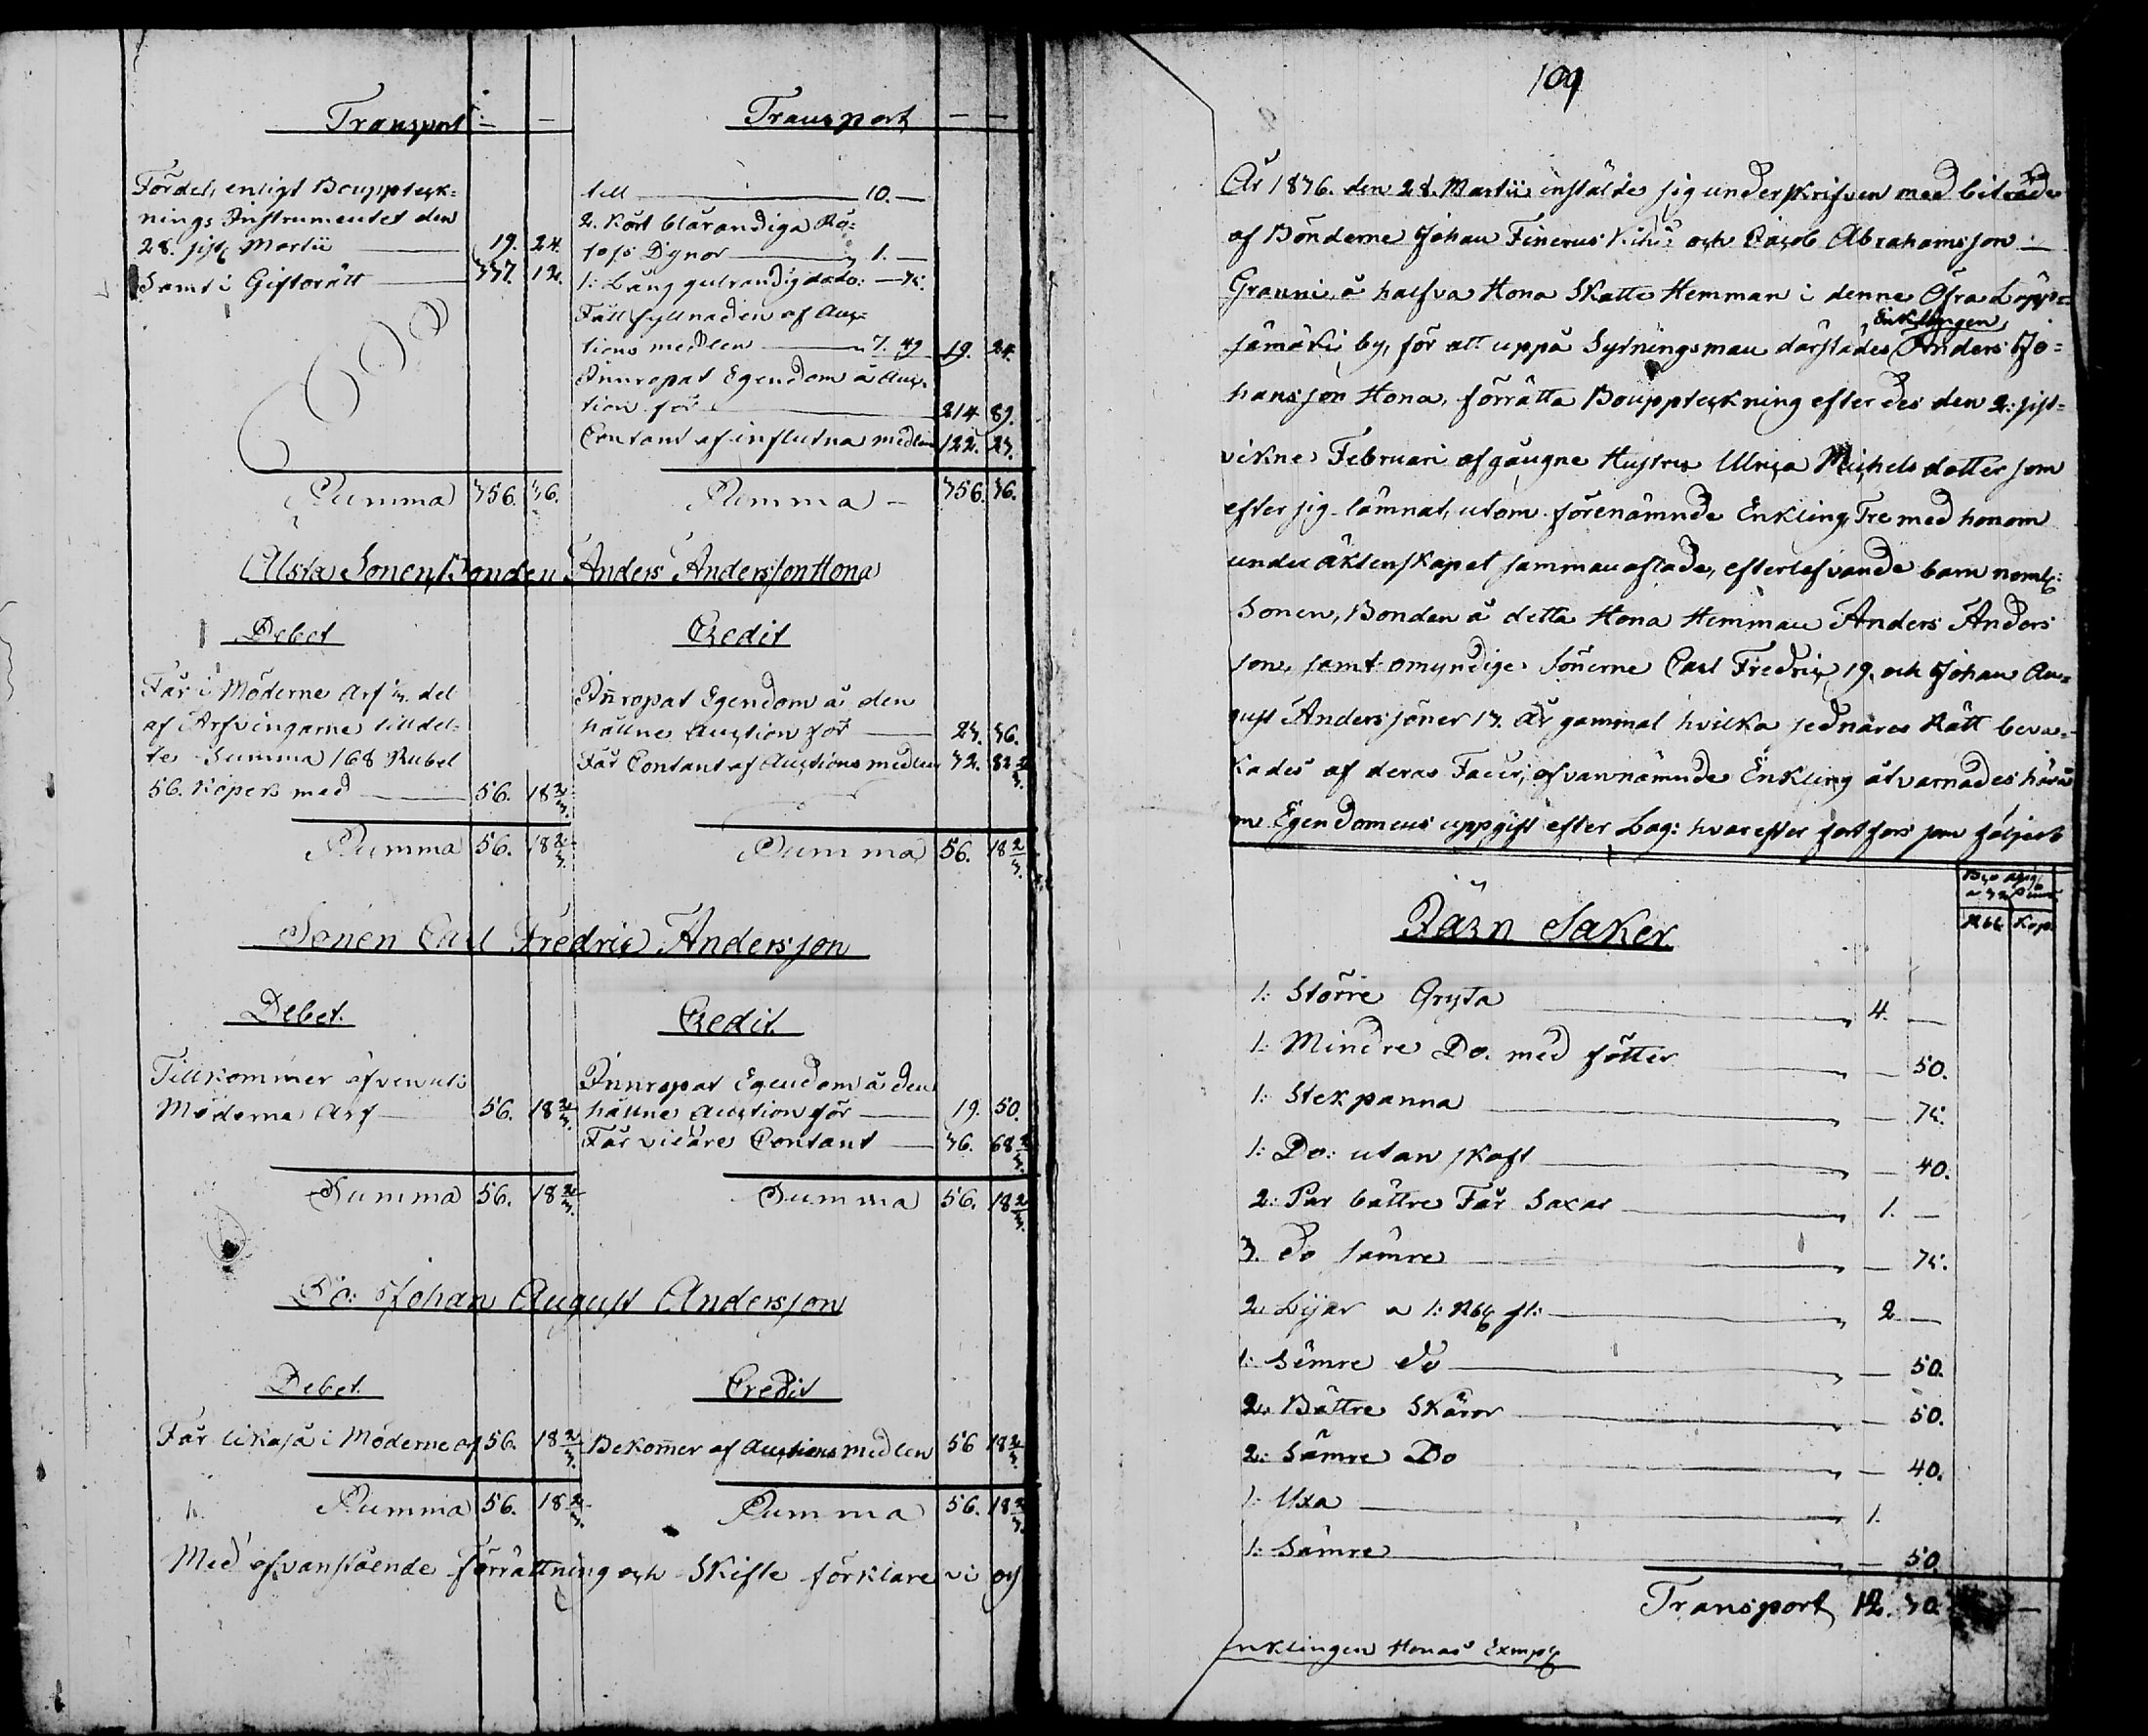 Transport — —
Fördel, enligt Bouppteck=
nings Instrumentet den
28. sistl. Martii — 19. 24.
Samt i Giftorätt — 337. 12.
Summa 356. 36.
Transport — —
till — 10. —
2. Kort blårandiga Rå=
Dynor — 1. —
1: Lång gulrandig dito: — 75.
Fällfyllnaden af Auc=
tions medlen — 7. 49 19. 24.
Innropat Egendom å Auc=
tion för — 214. 89.
Contant af influtna medlen 122. 23.
Summa — 356. 36.
Älsta Sonen, Bonden Anders Andersson Hona
Debet
Får i Möderne Arf 1/3. del
af Arfvingarne tilldel=
te Summa 168 Rubel
56. Kopek med — 56. 18 2/3.
Summa 56. 18 2/3.
Credit
Inropat Egendom å den
hållne Auction för — 23. 36.
Får Contant af Auctions medlen 32. 82 2/3.
Summa 56. 18 2/3.
Sonen Carl Fredric Andersson
Debet.
Tillkommer äfven uti
Möderne Arf — 56. 18 2/3.
Summa 56. 18 2/3.
Credit.
Innropat Egendom å den
hållne Auction för — 19. 50.
Får vidare Contant — 36. 68 2/3.
Summa 56. 18 2/3.
Do: Johan August Andersson
Debet.
Får likaså i Möderne arf 56. 18 2/3.
Summa 56. 18 2/3.
Credit
Bekommer af Auctions medlen 56 18 2/3.
Summa 56. 18 2/3.
Med ofvanstående förrättning och Skifte förklare vi oss
109
År 1836. den 28. Martii instälde sig underskrifven med biträde
af Bönderne Johan Finerus och Jacob Abrahamsson
Granni, å halfva Hona Skatte Hemman i denne Öfra Lapp=
Enklingen
by, för att uppå Sytningsman därstädes Anders Jo=
hansson Hona, förrätta Bouppteckning efter des den 2: sist=
vikne Februari afgångne Hustru Ulrica Michelsdotter som
efter sig lämnat, utom förenämnde Enkling, Tre med honom
under äktenskapet sammanaflade, efterlefvande barn neml:
Sonen, Bonden å detta Hona Hemman Anders Anders
son, samt omyndige Sönerne Carl Fredric 19. och Johan Au=
gust Anderssöner 13. År gammal hvilka sednares Rätt beva=
kades af deras Fader; ofvannämnde Enkling åtvarnades härå
om Egendomens uppgift efter Lag: hvarefter fortfors som följer:
Rbl Kop.
Järn Saker
1: Större Gryta — 4. —
1: Mindre Do. med fötter — 50.
1: Stekpanna — 75.
1: Do: utan skaft — 40.
2: Par bättre Får Saxar — 1. —
3. do sämre — 75.
2. Lijar a 1: Rbl st: — 2 —
1: Sämre do — 50.
2. Bättre Skäror — 50.
2: Sämre Do — 40.
1: Yxa — 1.
1: Sämre — 50.
Transport 12. 30.
Enklingen Honas Exempl